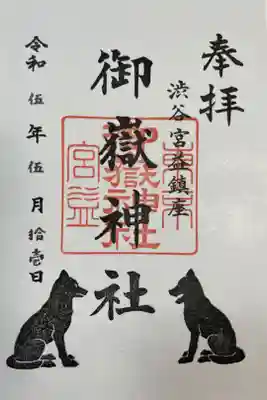 奉拝
渋谷宮益鎮座
御嶽神社
東京
御嶽神社
宮益
令和伍年伍月拾壱日